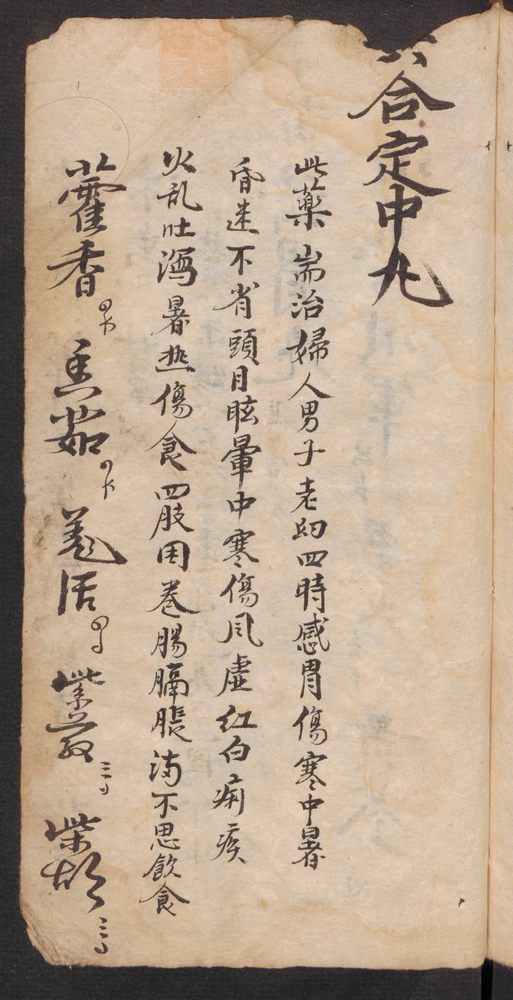 六合定中丸
此藥耑治婦人男子老幼四時感胃傷寒中暑
昏迷不省頭目眩暈中寒傷風虛紅白痢疾
火乱吐瀉暑热傷食四肢困卷腸膈脹满不思飲食
藿香 香茹 羌活 紫蘇 三 柴胡 三